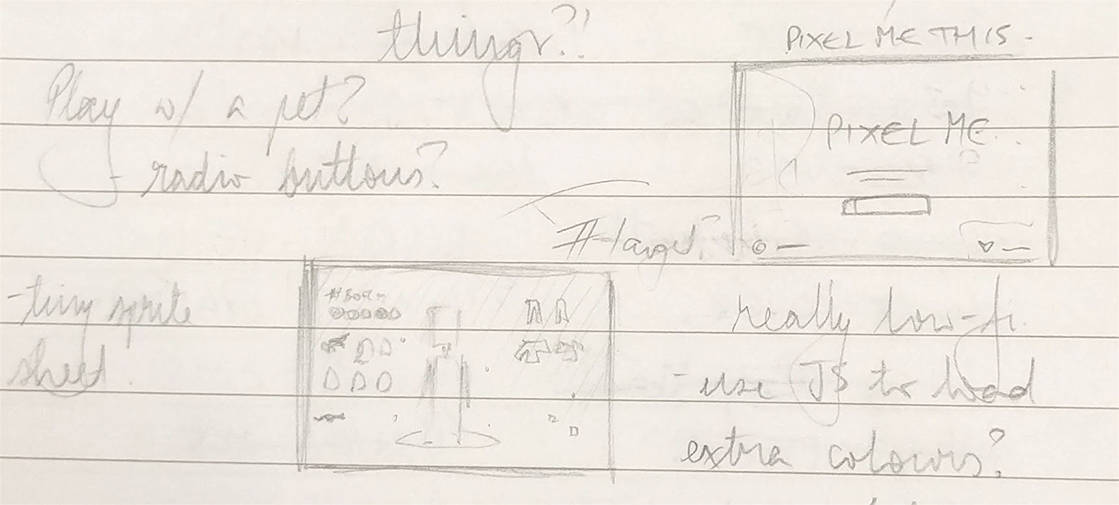 things?!
PIXEL ME THIS -
Play w/ a pet?
PIXEL ME.
- radio buttons?
#target?
- tiny sprite
sheet.
really low-fi.
- use JS to load
extra colours?